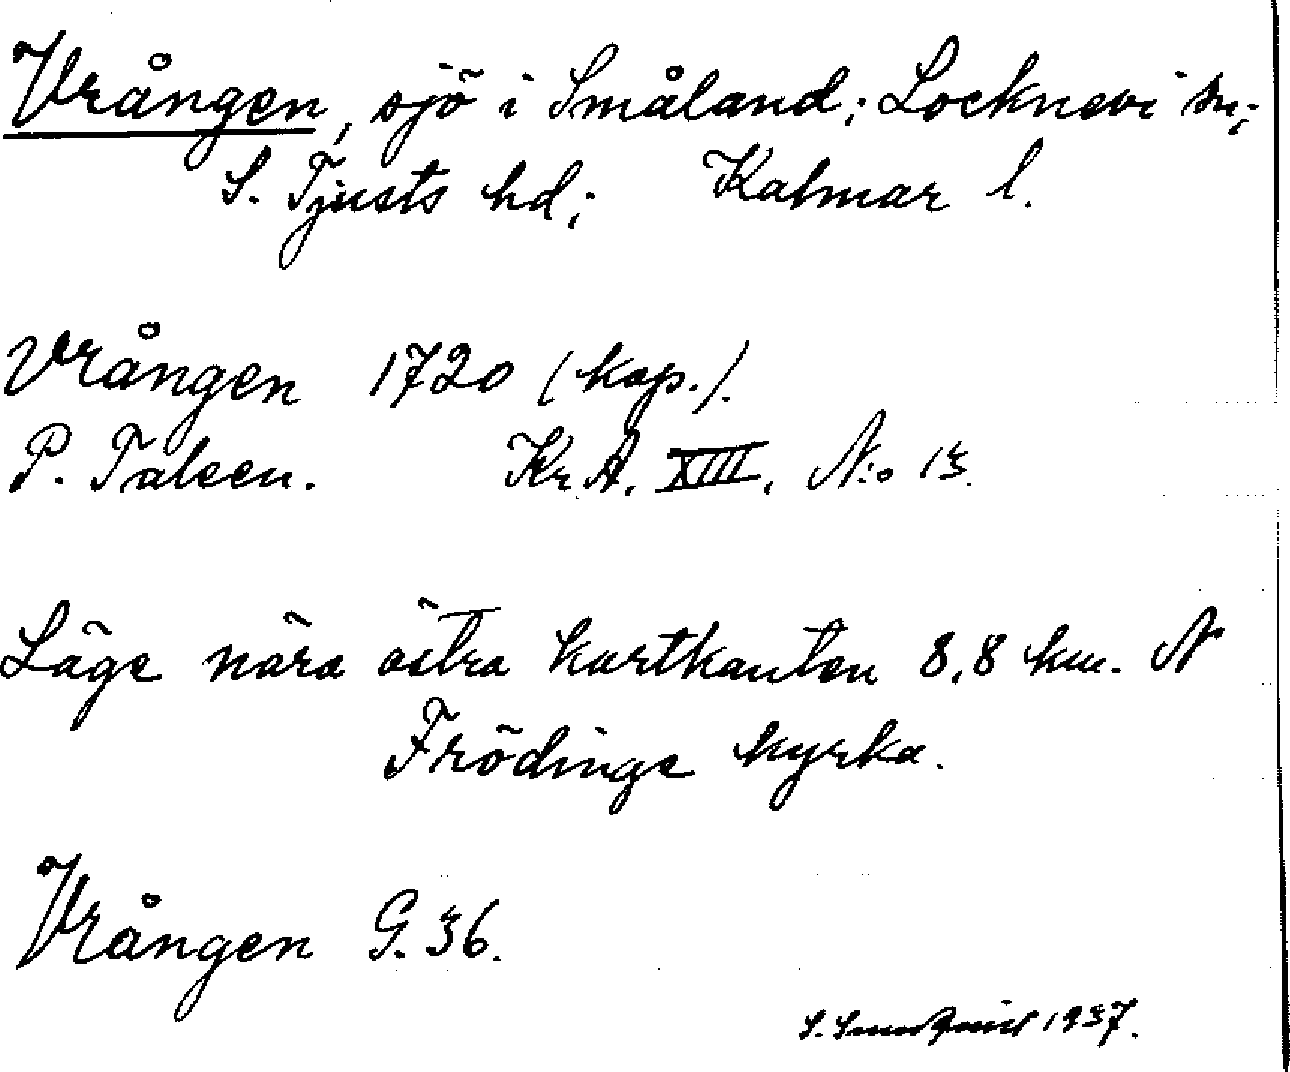 Vrången, sjö i Småland; Locknevi sn;
S. Tjusts hd; Kalmar l.
Vrången 1720 (kop.).
P. Taleen. Kr. A. XIII. N:o 13.
Läge nära östra kartkanten 8,8 km. N
Frödinge kyrka.
Vrången G. 36.
S. 1937.